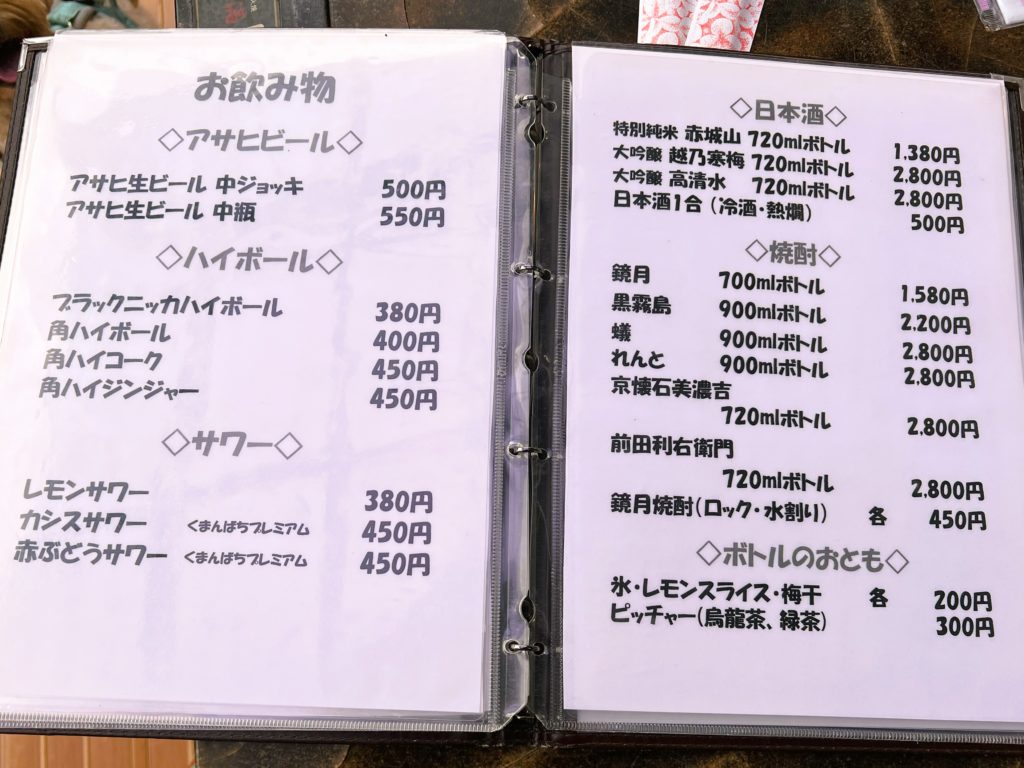 お飲み物
◇アサヒビール◇
アサヒ生ビール 中ジョッキ 500円
アサヒ生ビール 中瓶 550円
◇ハイボール◇
ブラックニッカハイボール 380円
角ハイボール 400円
角ハイコーク 450円
角ハイジンジャー 450円
◇サワー◇
レモンサワー 380円
カシスサワー くまんばちプレミアム 450円
赤ぶどうサワー くまんばちプレミアム 450円
◇日本酒◇
特別純米 赤城山 720mlボトル 1.380円
大吟醸 越乃寒梅 720mlボトル 2.800円
大吟醸 高清水 720mlボトル 2.800円
日本酒1合 (冷酒・熱燗) 500円
◇焼酎◇
鏡月 700mlボトル 1.580円
黒霧島 900mlボトル 2.200円
蟻 900mlボトル 2.800円
れんと 900mlボトル 2.800円
京懐石美濃吉
720mlボトル 2.800円
前田利右衛門
720mlボトル 2.800円
鏡月焼酎(ロック・水割り) 各 450円
◇ボトルのおとも◇
氷・レモンスライス・梅干 各 200円
ピッチャー(烏龍茶、緑茶) 300円